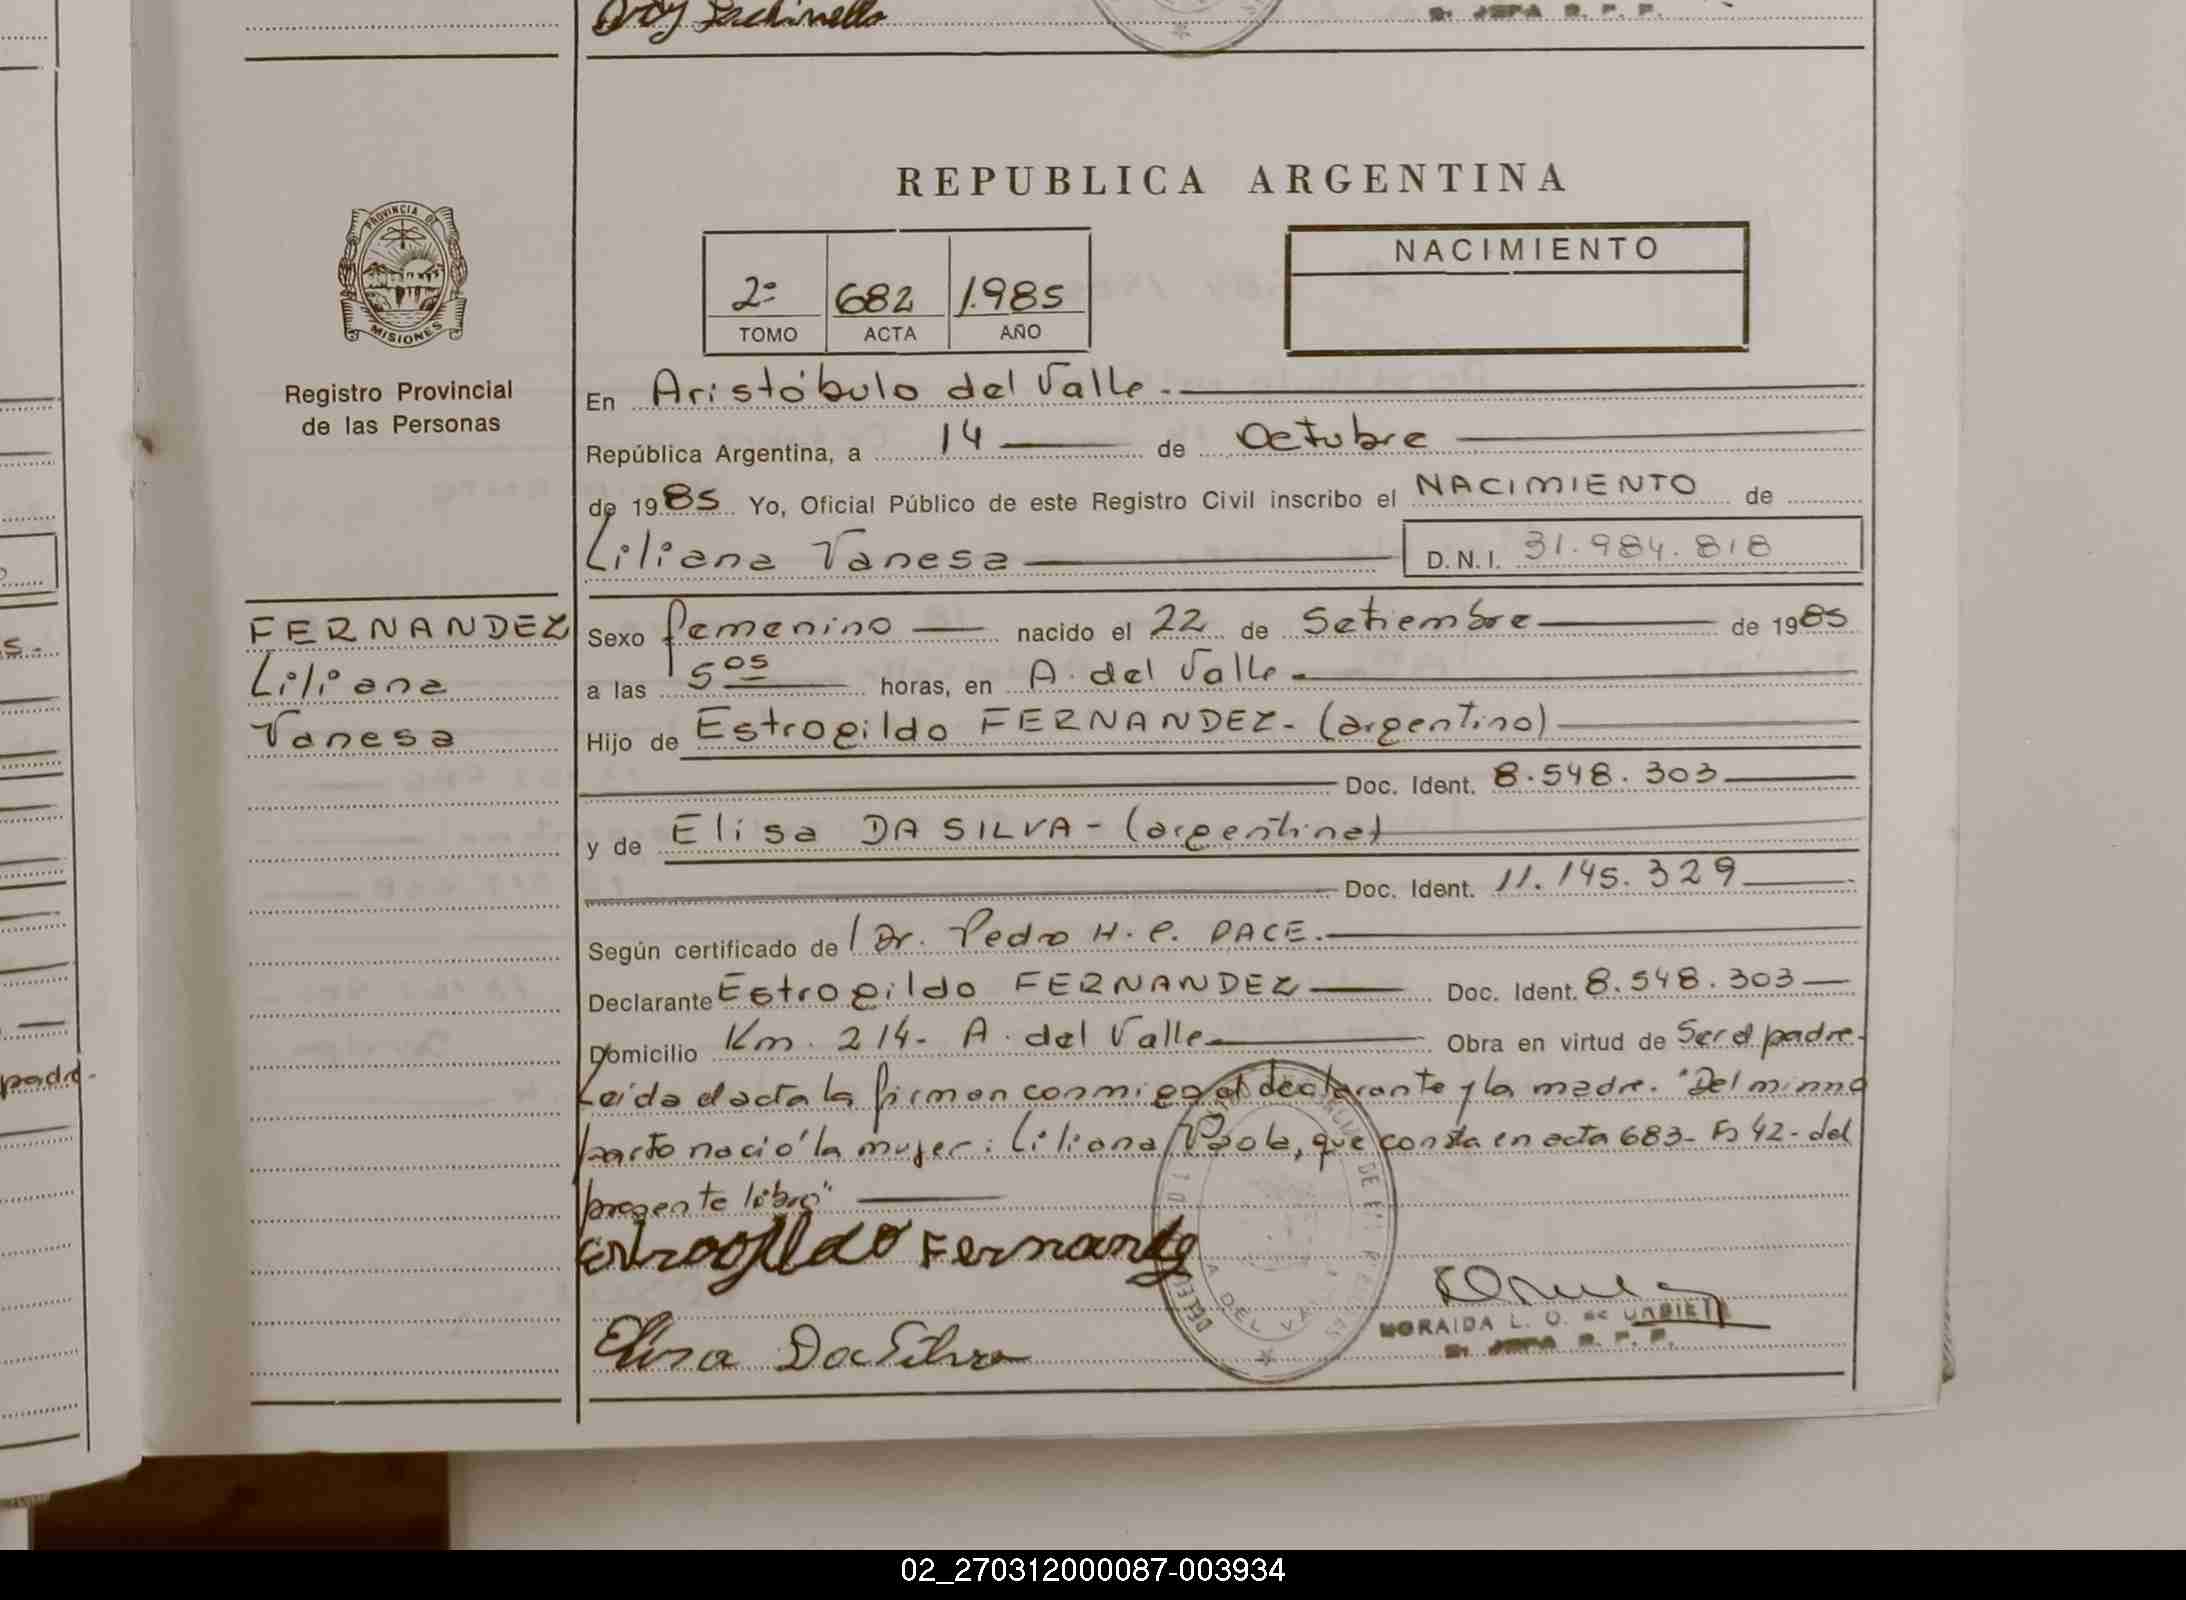 PROVINCIA DE
MISIONES
Registro Provincial
de las Personas
REPUBLICA ARGENTINA
2º 682 1.985
TOMO ACTA AÑO
NACIMIENTO
En Aristóbulo del Valle.-
República Argentina, a 14 de Octubre
de 1985 Yo, Oficial Público de este Registro Civil inscribo el NACIMIENTO de
Liliana Vanesa D.N.I. 31.984.818
FERNANDEZ
Liliana
Vanesa
Sexo femenino nacido el 22 de Setiembre de 1985
a las 5 05 horas, en A. del Valle
Hijo de Estrogildo FERNANDEZ - (argentino)
Doc. Ident. 8.548.303
y de Elisa DA SILVA - (argentina)
Doc. Ident. 11.145.329
Según certificado de Dr. Pedro H. P. PACE.
Declarante Estrogildo FERNANDEZ Doc. Ident. 8.548.303
Domicilio Km. 214- A. del Valle Obra en virtud de Ser el padre.
Leída el acta la firman conmigo el declarante y la madre. "Del mismo
parto nació la mujer: Liliana Paola, que consta en acta 683- Fº 42- del
presente libro"
Estrogildo Fernandez
Elisa Da Silva
MORAIDA L. O. de URBIETA
JEFA R. P. P.
padre.
02_270312000087-003934